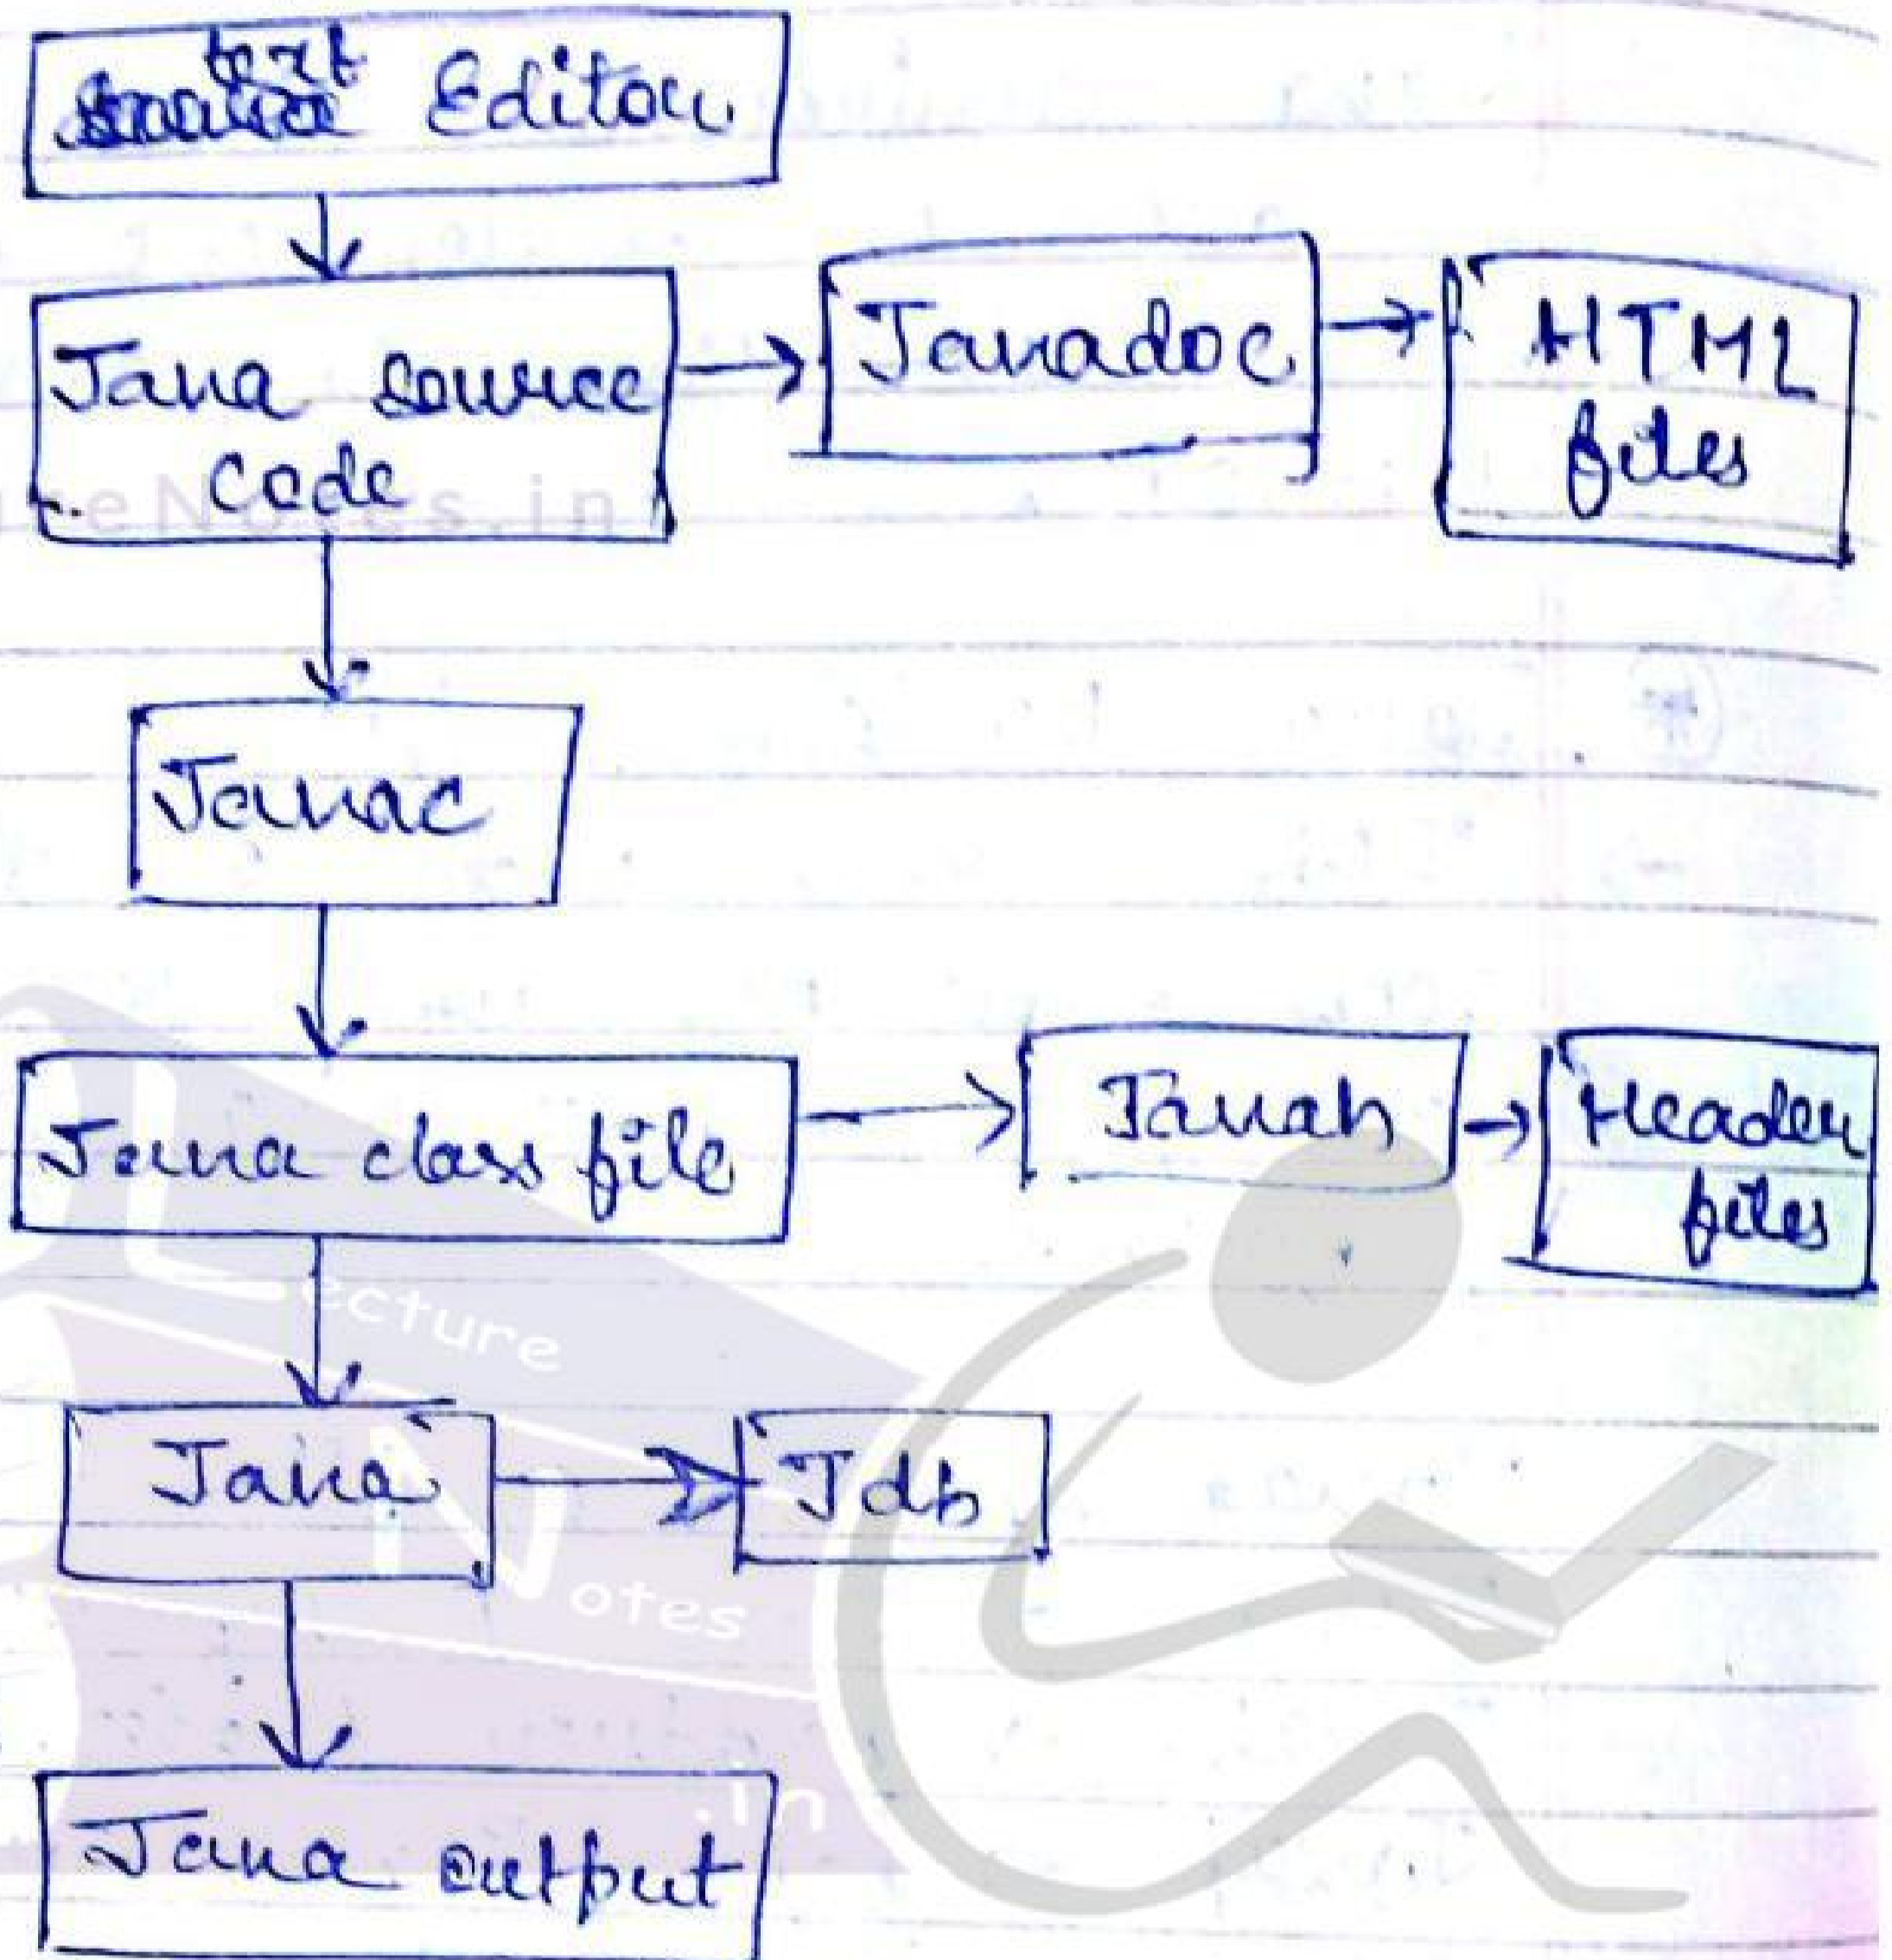 text Editor
Java source
Code
Javadoc
HTML
files
Javac
Java class file
Javah
Header
files
Java
Jdb
Java output
eNotes.in
Lecture
Notes
.in